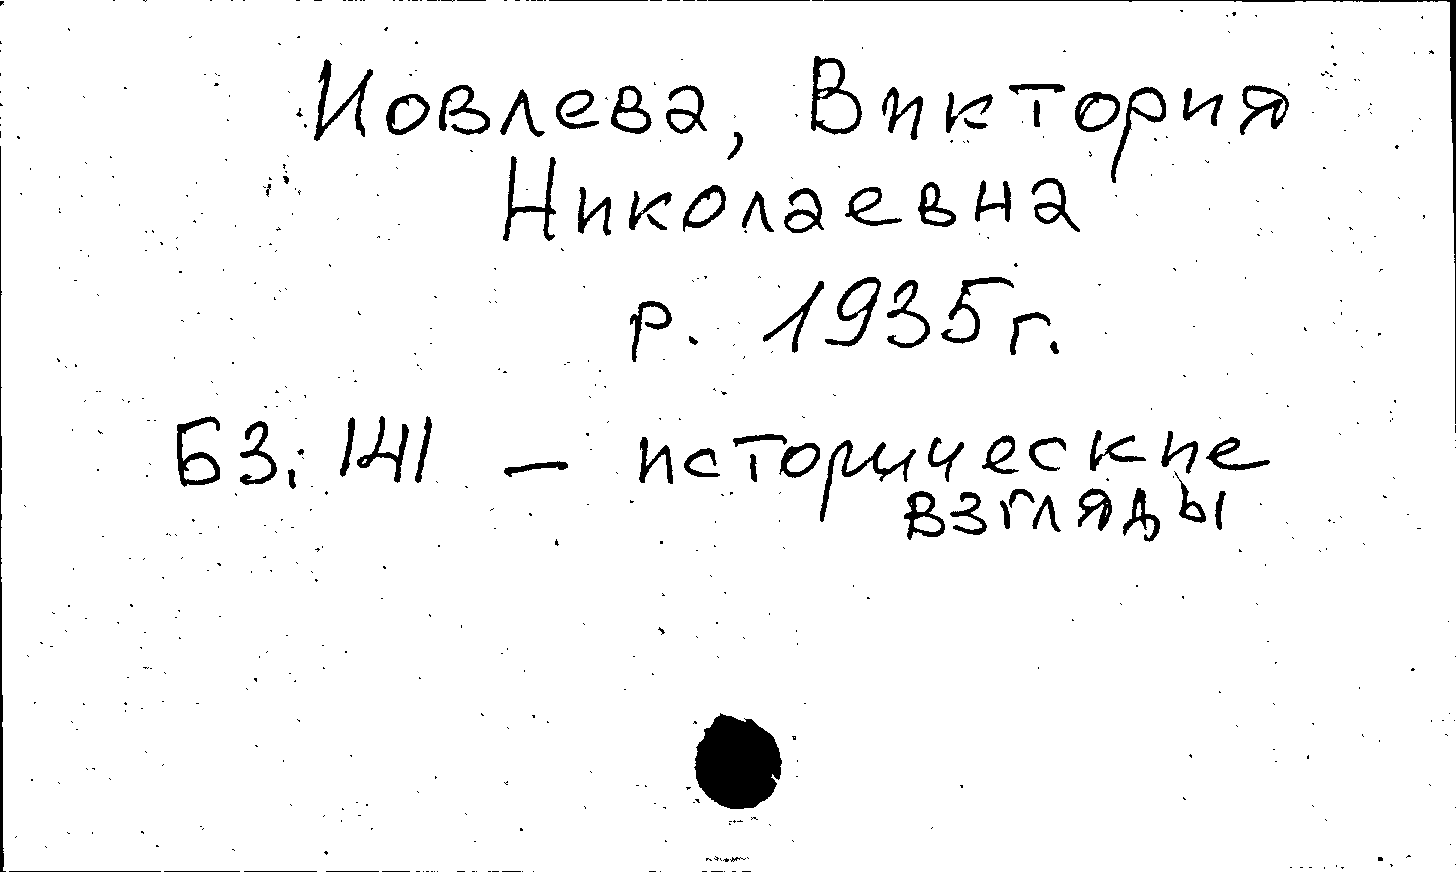 Иовлева, Виктория
Николаевна
р. 1935 г.
БЗ: 141 — исторические
взгляды